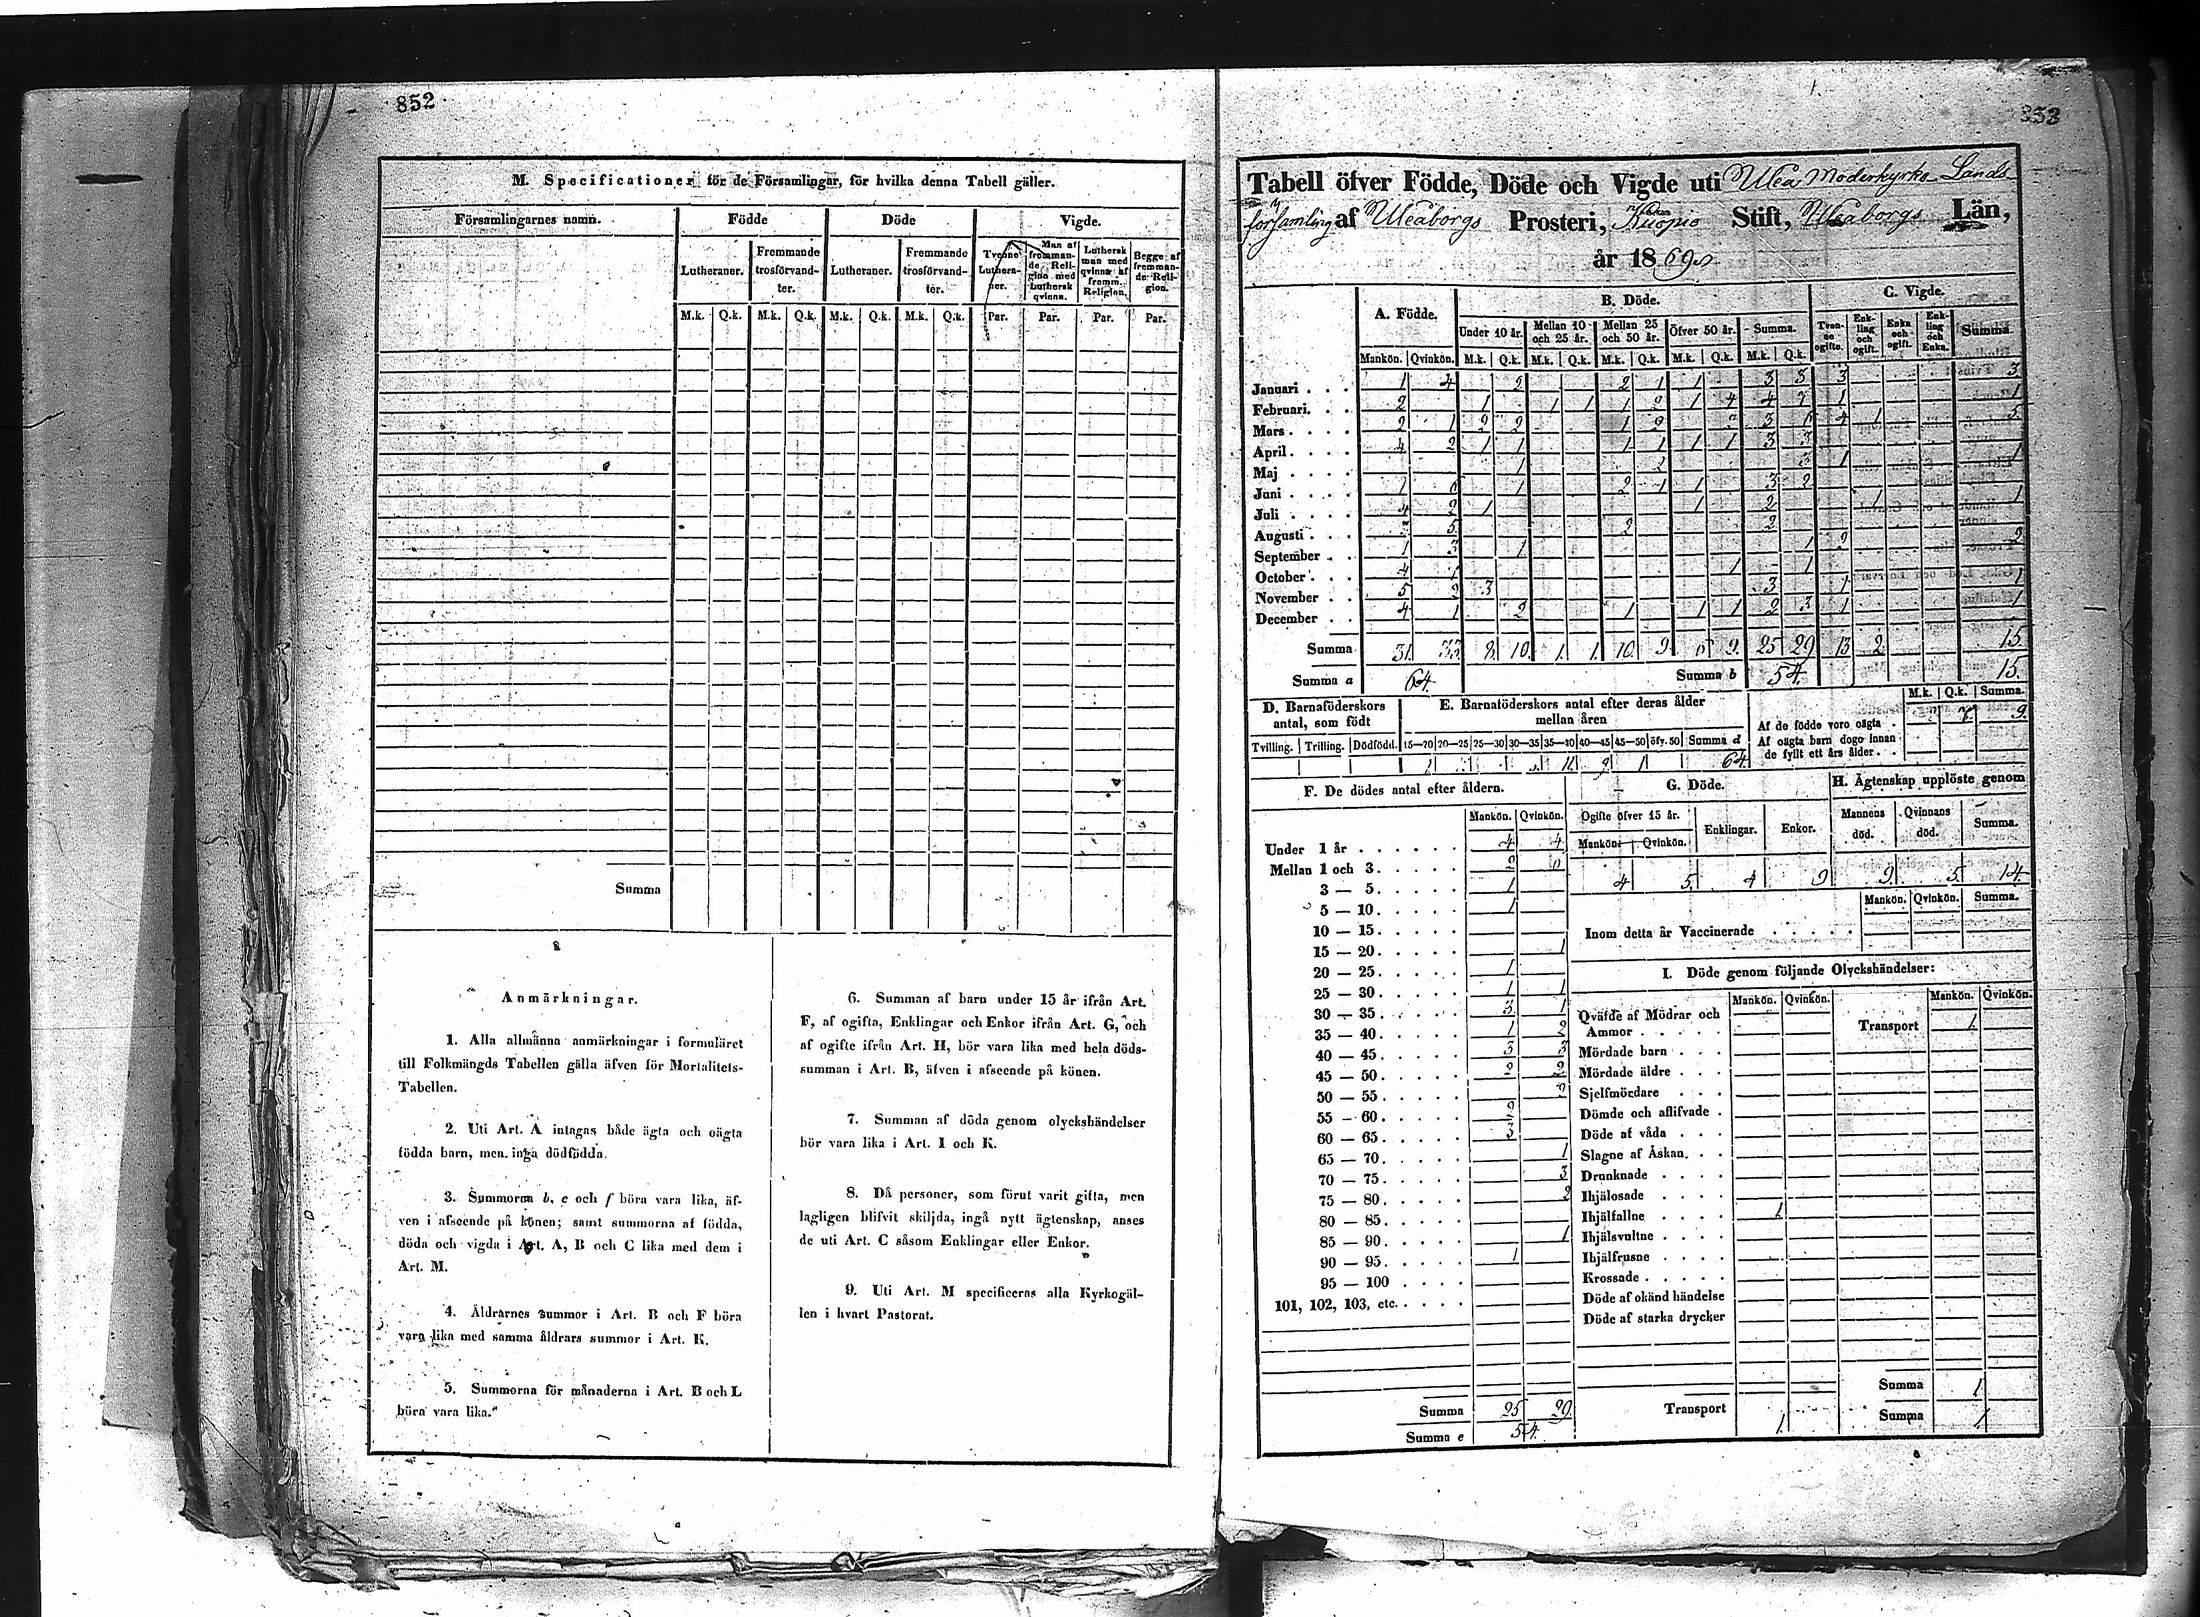 852
M. Specificationer för de Församlingar, för hvilka denna Tabell gäller.
Församlingarnes namn. Födde Döde Vigde.
Lutheraner. Fremmande trosförvandter. Lutheraner. Fremmande trosförvandter. Tvenne Lutheraner. Man af fremmande Religion med Luthersk qvinna. Luthersk man med qvinna af fremm. Religion. Begge af fremmande Religion.
M.k. Q.k. M.k. Q.k. M.k. Q.k. M.k. Q.k. Par. Par. Par. Par.
Summa
Anmärkningar.
1. Alla allmänna anmärkningar i formuläret
till Folkmängds Tabellen gälla äfven för Mortalitets-
Tabellen.
2. Uti Art. A intagas både ägta och oägta
födda barn, men inga dödfödda.
3. Summorna b, e och f böra vara lika, äf-
ven i afseende på könen; samt summorna af födda,
döda och vigda i Art. A, B och C lika med dem i
Art. M.
4. Åldrarnes summor i Art. B och F böra
vara lika med samma åldrars summor i Art. K.
5. Summorna för månaderna i Art. B och L
böra vara lika.
6. Summan af barn under 15 år ifrån Art.
F, af ogifta, Enklingar och Enkor ifrån Art. G, och
af ogifte ifrån Art. H, bör vara lika med hela döds-
summan i Art. B, äfven i afseende på könen.
7. Summan af döda genom olyckshändelser
bör vara lika i Art. I och K.
8. Då personer, som förut varit gifta, men
lagligen blifvit skiljda, ingå nytt ägtenskap, anses
de uti Art. C såsom Enklingar eller Enkor.
9. Uti Art. M specificeras alla Kyrkogäl-
len i hvart Pastorat.
853
Tabell öfver Födde, Döde och Vigde uti Uleå Moderkyrko Lands
församling af Uleåborgs Prosteri, Kuopio Stift, Uleåborgs Län,
år 1869
A. Födde. B. Döde. C. Vigde.
Under 10 år. Mellan 10 och 25 år. Mellan 25 och 50 år. Öfver 50 år. Summa. Tvenne ogifte. Enkling och ogift. Enka och ogift. Enkling och Enka. Summa.
Mankön. Qvinkön. M.k. Q.k. M.k. Q.k. M.k. Q.k. M.k. Q.k. M.k. Q.k.
Januari . . . 1 4 2 2 1 1 3 3 3
Februari. . . 2 1 1 1 1 2 1 4 4 1 1
Mars . . . . 2 1 2 2 1 2 3 6 4 1 5
April . . . . 4 2 1 1 1 1 1 1 3 3
Maj . . . . 1 2 3 1 1
Juni . . . . 1 1 2 1 1 3 2
Juli . . . . 4 2 1 1 2 1 1
Augusti . . . 5 2 2
September . . 1 3 1 1 2 2
October . . . 4 1 1 1
November . . 5 2 3 3 1 1
December . . 4 1 2 1 1 1 2 3 1 1
Summa 31. 33. 8. 10. 1. 1. 10. 9. 6 9. 25 29 13 2 15.
Summa a 64. Summa b 54. 15.
D. Barnaföderskors antal, som födt
E. Barnaföderskors antal efter deras ålder mellan åren
M.k. Q.k. Summa.
Tvilling. Trilling. Dödfödd. 15—20 20—25 25—30 30—35 35—40 40—45 45—50 öfv. 50 Summa d
64.
Af de födde voro oägta . 9.
Af oägta barn dogo innan
de fyllt ett års ålder. .
F. De dödes antal efter åldern.
Mankön. Qvinkön.
Under 1 år . . . . . . 4 4
Mellan 1 och 3. . . . . 2
3 — 5. . . . . 1
5 — 10. . . . . 1
10 — 15. . . . .
15 — 20. . . . . 1
20 — 25. . . . . 1
25 — 30. . . . . 1 1
30 — 35. . . . . 3 1
35 — 40. . . . . 1 2
40 — 45. . . . . 3 3
45 — 50. . . . . 2 2
50 — 55. . . . . 2
55 — 60. . . . . 2
60 — 65. . . . . 3
65 — 70. . . . . 1
70 — 75. . . . . 3
75 — 80. . . . . 2
80 — 85. . . . .
85 — 90. . . . . 1
90 — 95. . . . . 1
95 — 100 . . . .
101, 102, 103, etc. . . . .
Summa 25 29.
Summa e 54.
G. Döde.
Ogifte öfver 15 år. Enklingar. Enkor.
Mankön. Qvinkön.
4 5. 4 9
H. Ägtenskap upplöste genom
Mannens död. Qvinnans död. Summa.
9. 5. 14.
Mankön. Qvinkön. Summa.
Inom detta år Vaccinerade . . . . .
I. Döde genom följande Olyckshändelser:
Mankön. Qvinkön. Mankön. Qvinkön.
Qväfde af Mödrar och
Ammor . . . . Transport 1.
Mördade barn . . .
Mördade äldre . . .
Sjelfmördare . . .
Dömde och aflifvade .
Döde af våda . . .
Slagne af Åskan. . .
Drunknade . . . .
Ihjälosade . . . .
Ihjälfallne . . . . 1.
Ihjälsvultne . . . .
Ihjälfrusne . . . .
Krossade . . . . .
Döde af okänd händelse
Döde af starka drycker
Summa 1
Transport 1. Summa 1